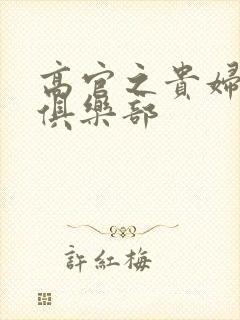 高官之貴婦
俱樂部
許紅梅